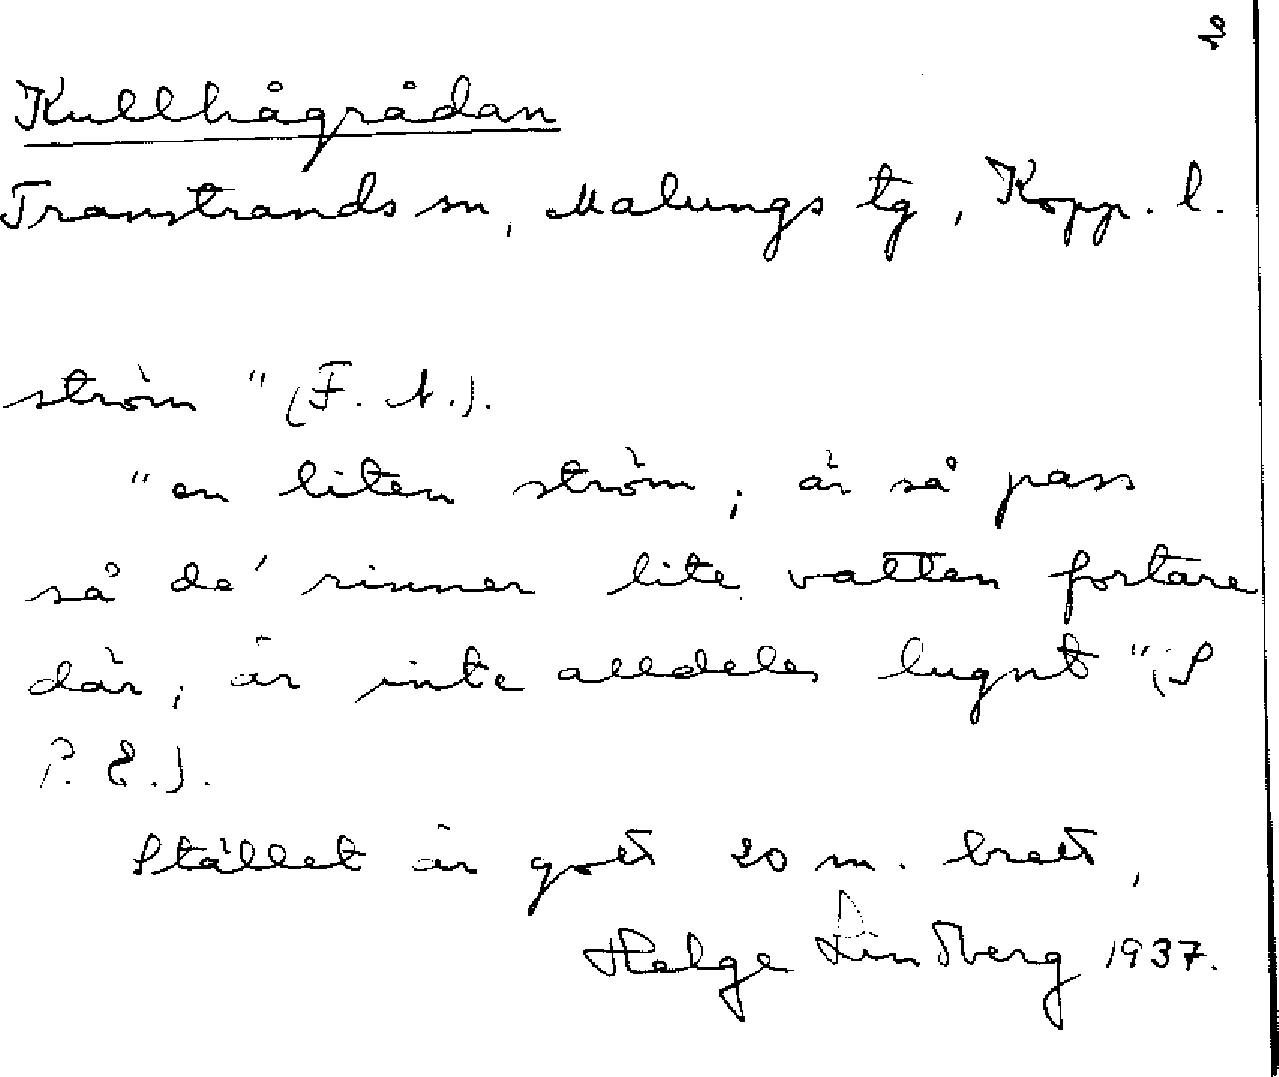 Kullhågrådan
Transtrands sn, Malungs tg, Kopp. l.
ström" (F. A.).
"en liten ström; är så pass
så de' rinner lite vatten fortare
där, är inte alldeles lugnt" (S
P. E.).
Stället är gott 20 m. brett,
Helge Lindberg 1937.